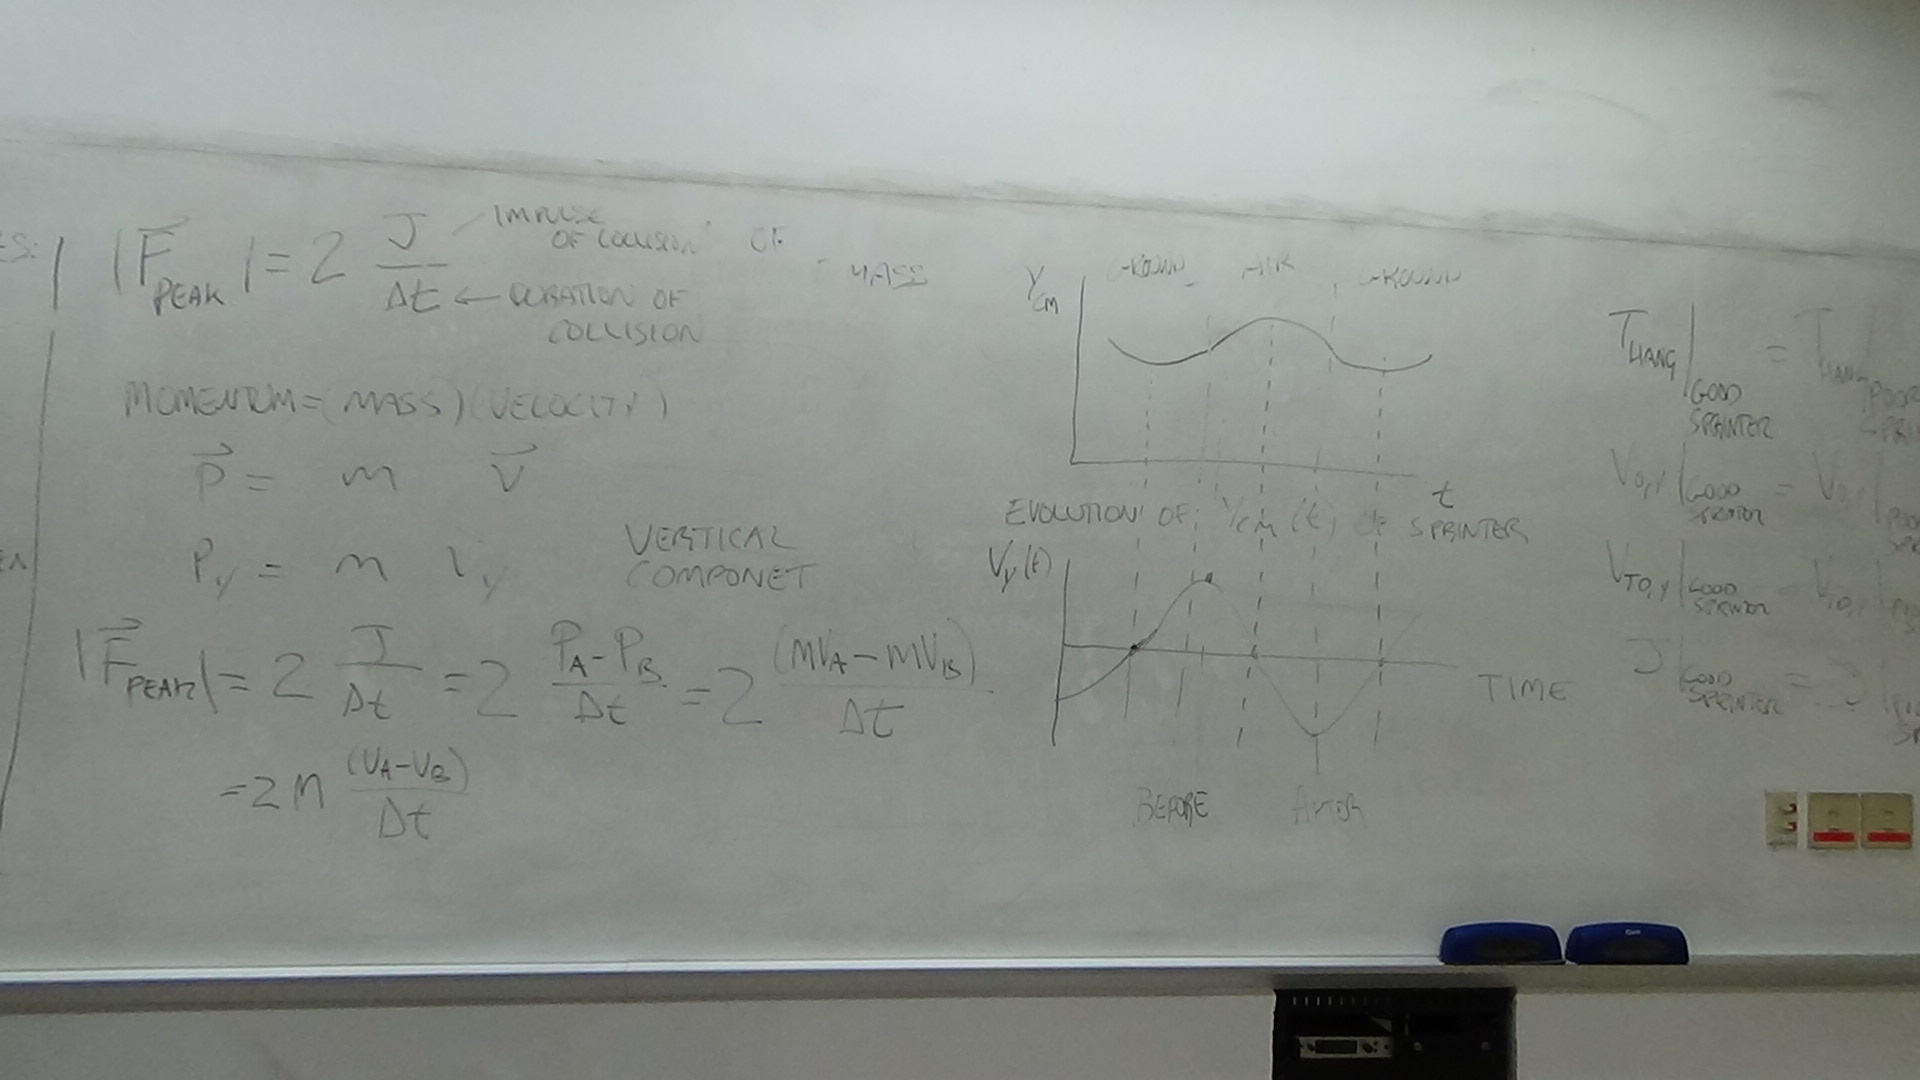 ES:
|F⃗PEAK| = 2 J/Δt
IMPULSE
OF COLLISION
OF
MASS
← DURATION OF
COLLISION
MOMENTUM = (MASS)(VELOCITY)
P⃗ = m v⃗
Py = m Vy
VERTICAL
COMPONET
|F⃗PEAK| = 2 J/Δt = 2 (PA-PB)/Δt = 2 (MVA-MVB)/Δt
= 2M (VA-VB)/Δt
YCM
GROUND AIR GROUND
t
EVOLUTION OF YCM(t) OF SPRINTER
Vy(t)
TIME
BEFORE AFTER
THANG|GOOD SPRINTER = THANG|POOR
VO,Y|GOOD SPRINTER = VO,Y|POOR
VTO,Y|GOOD SPRINTER = VTO,
J|GOOD SPRINTER = J|